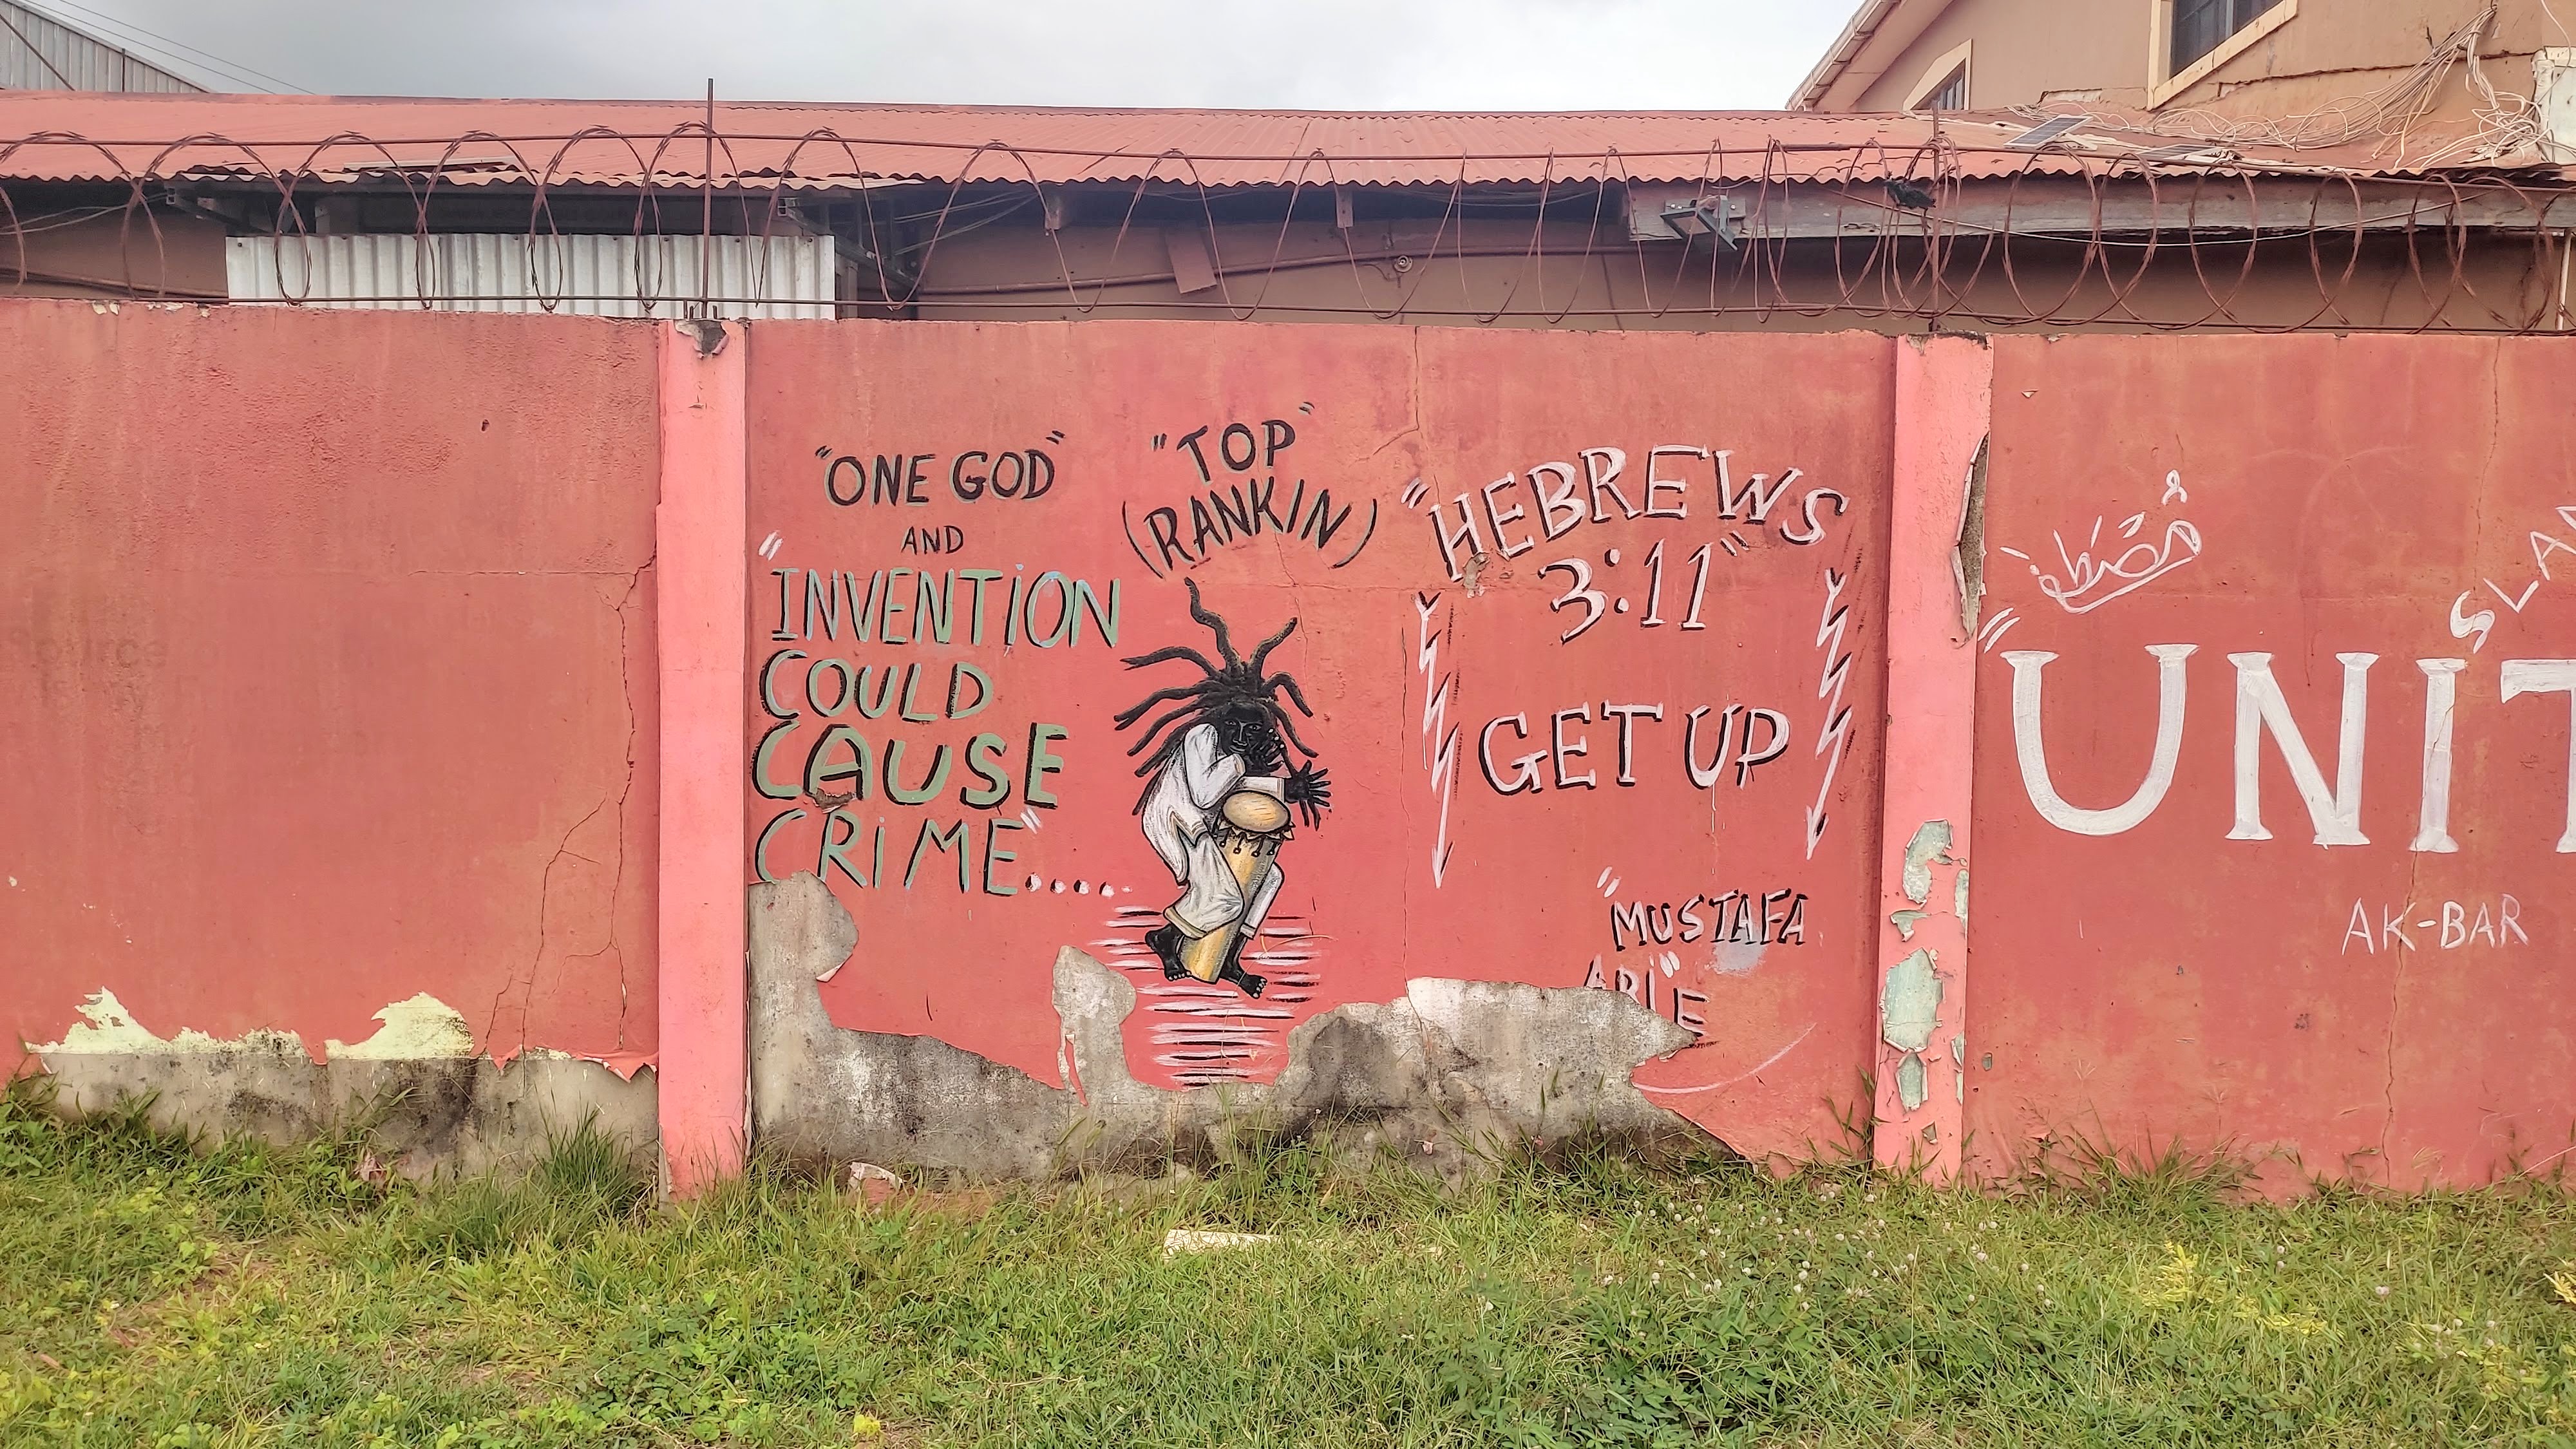 "ONE GOD"
AND
"INVENTiON
COULD
CAUSE
CRiME".....
"TOP"
(RANKIN)
"HEBREWS
3:11"
GET UP
"MUSTAFA
"UNIT
AK-BAR